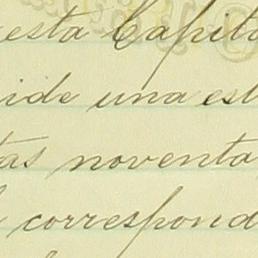 esta Capita
ide una est
tas noventa
correspond